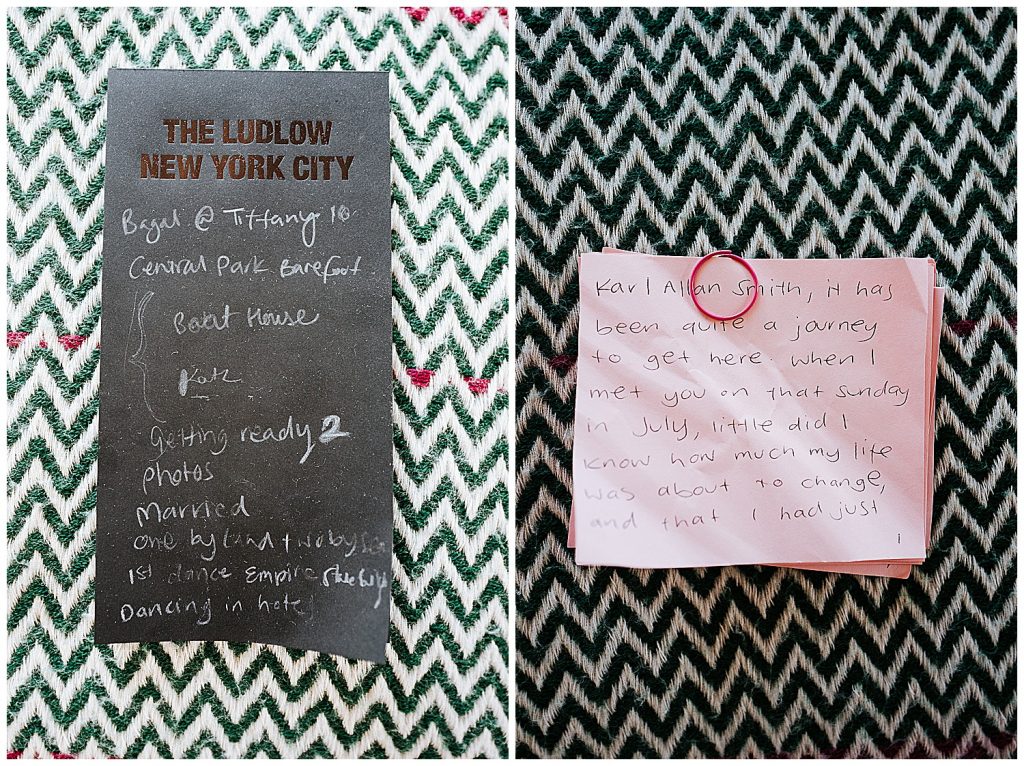 THE LUDLOW
NEW YORK CITY
Bagal @ Tiffany 10
Central Park Barefoot
Boat House
Katz
getting ready 2
photos
Married
one by land + two by sea
1st dance Empire
Dancing in hotel
Karl Allan Smith, it has
been quite a journey
to get here. when I
met you on that sunday
in July, little did I
know how much my life
was about to change,
and that I had just
1